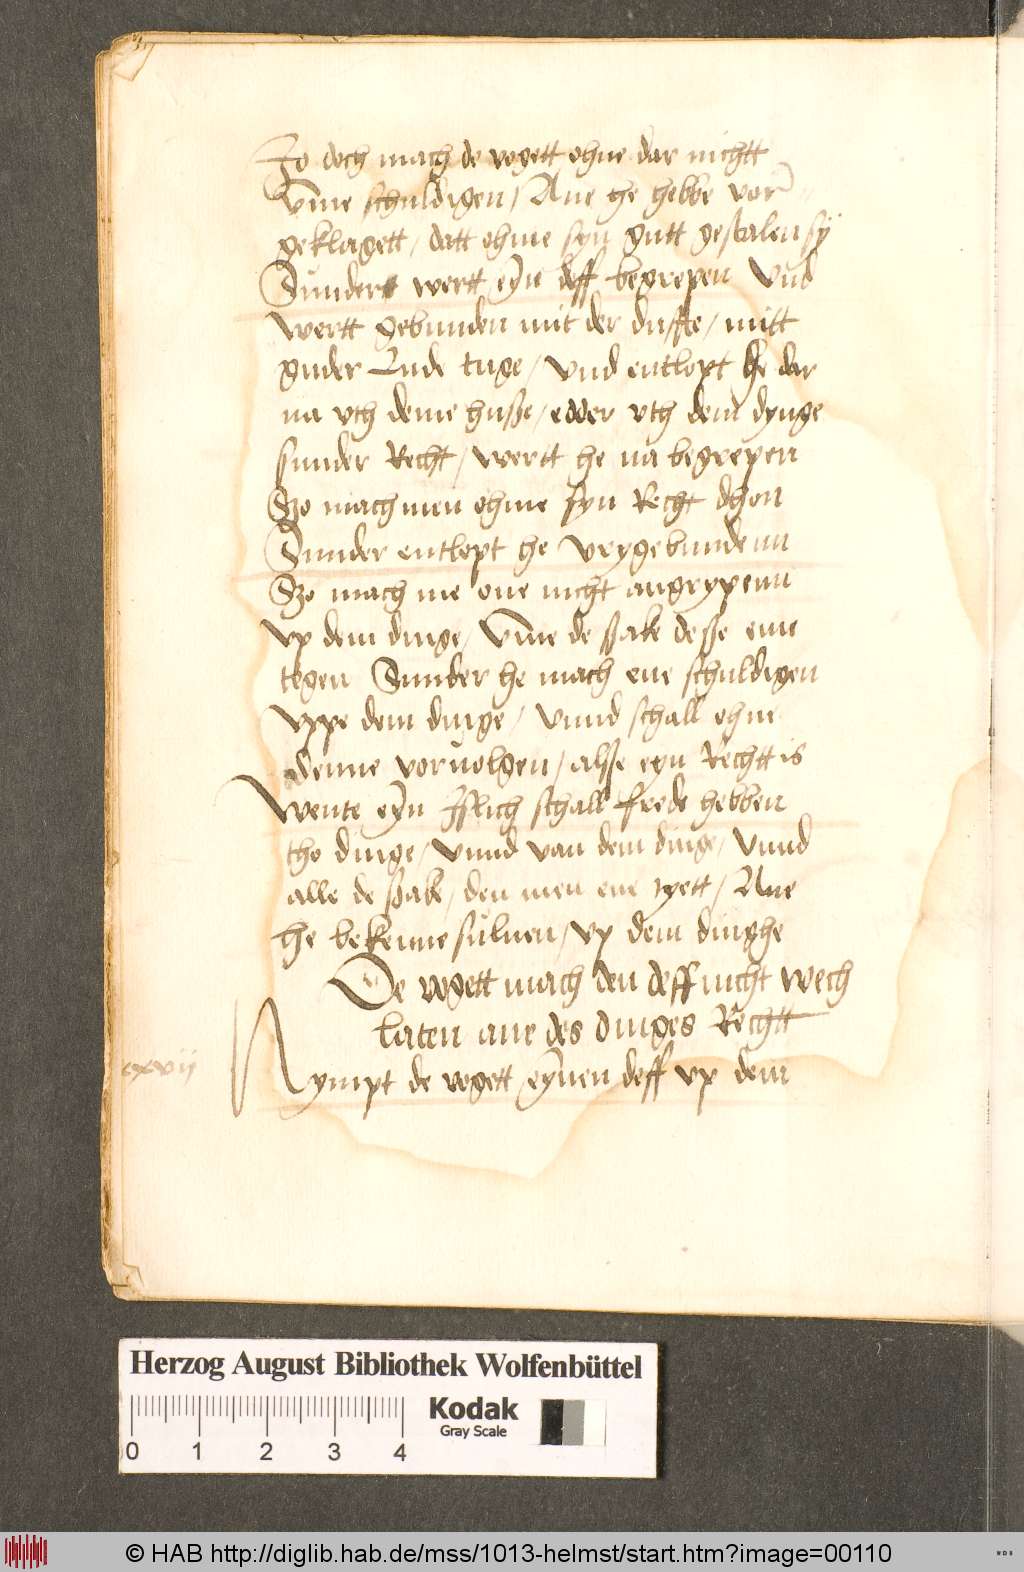 Jo doch mach de vogett ohne dar nichtt
vm̄e schuldigen / Ane he hebbe vor
geklagett / datt ohme syn gutt gestalen sy
Sundert wertt eyn deff begrepen vnd
wertt gebunden mit der duffte / mitt
guder Lude tuge / vnd entlopt he dar
na vth deme huße / edder vth dem dynge
sunder Recht / wertt he na begrepen
Szo mach men ohme syn Recht dhon
Sunder entlopt he vnygebundenn
Szo mach me one nicht angrypenn
vp dem dinge / vm̄e de ßake deße eme
tegen Sunder he mach ene schuldigen
vppe dem dinge / vnnd schall ohne
denne voruolgen / alße eyn Rechtt is
Wente eyn Jslich schall frede hebben
tho dinge / vnnd van dem dinge / vnnd
alle de ßake / den men ene tyett / Ane
he bekenne suluen / vp dem dinghe
De vogett mach den deff nicht wech
laten ane des dinges Rechtt
cxvij
Nympt de vogett eynen deff vp dem
Herzog August Bibliothek Wolfenbüttel
Kodak
Gray Scale
0 1 2 3 4
© HAB http://diglib.hab.de/mss/1013-helmst/start.htm?image=00110